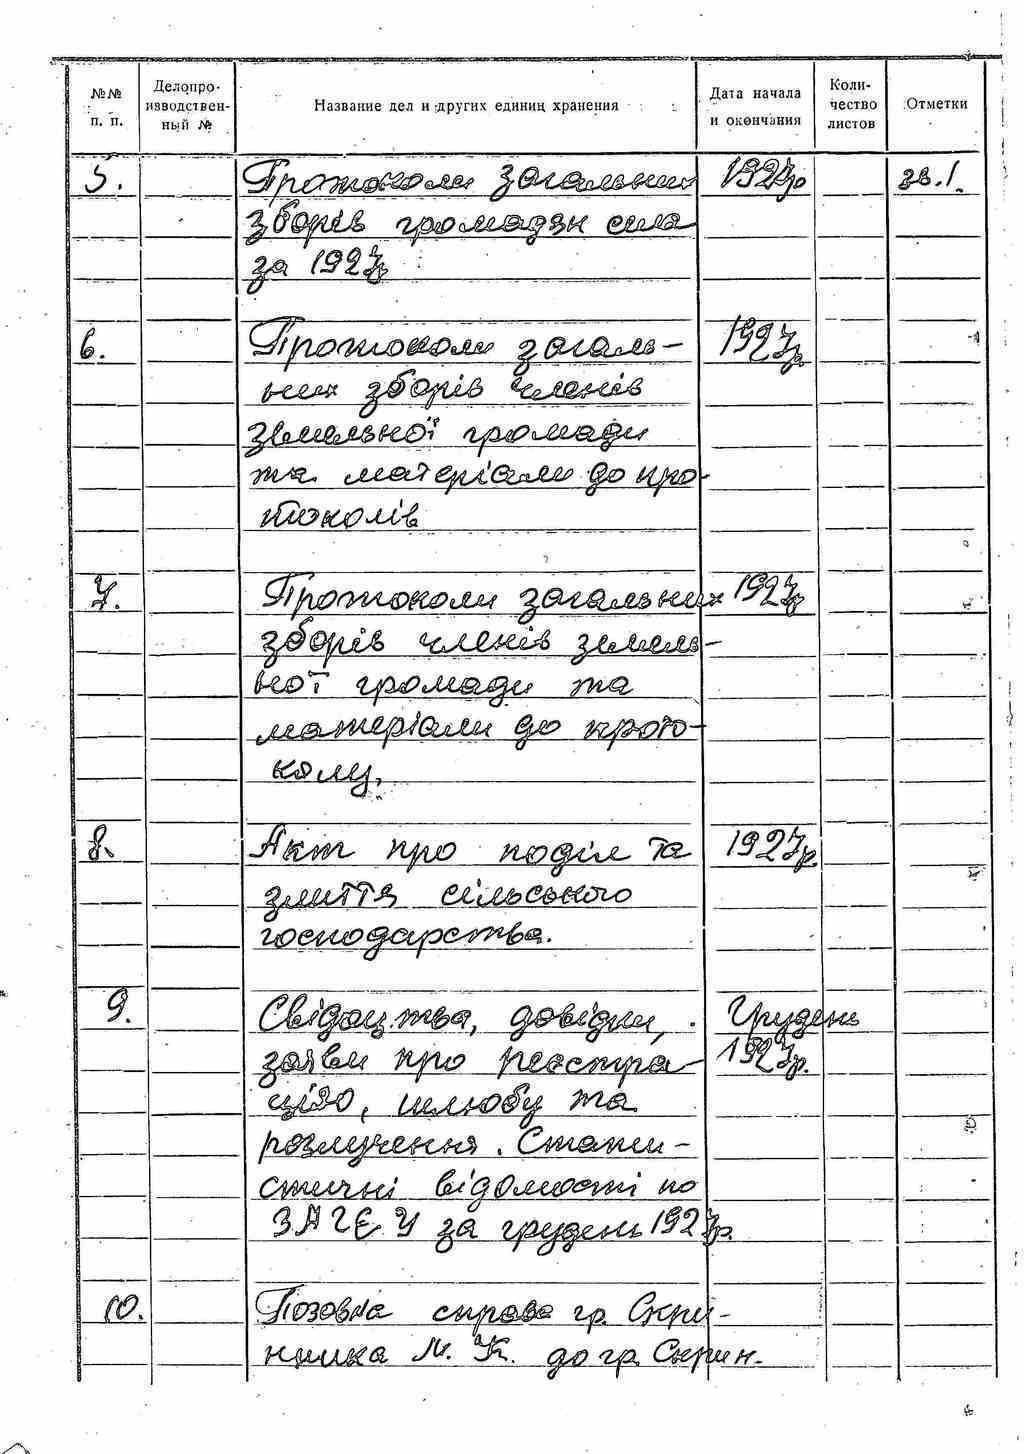 №№ п. п.
Делопро-изводствен-ный №
Название дел и других единиц хранения
Дата начала и окончания
Коли-чество листов
Отметки
5. Протоколи загальних 1927р зв.1.
зборів громадян села
за 1927р
6. Протоколи загаль- 1927р.
них зборів членів
земельної громади
та матеріали до про-
токолів
7. Протоколи загальних 1927р
зборів членів земель-
ної громади та
матеріали до прото-
колу.
8. Акт про поділ та 1927р.
злиття сільського
господарства.
9. Свідоцтва, довідки, Грудень
заяви про реєстра- 1927р.
цію, шлюбу та
розлучення. Стати-
стичні відомості по
ЗАГЕУ за грудень 1927р.
10. Позовна справа гр. Скри-
нника М. К. до гр. Скрин.